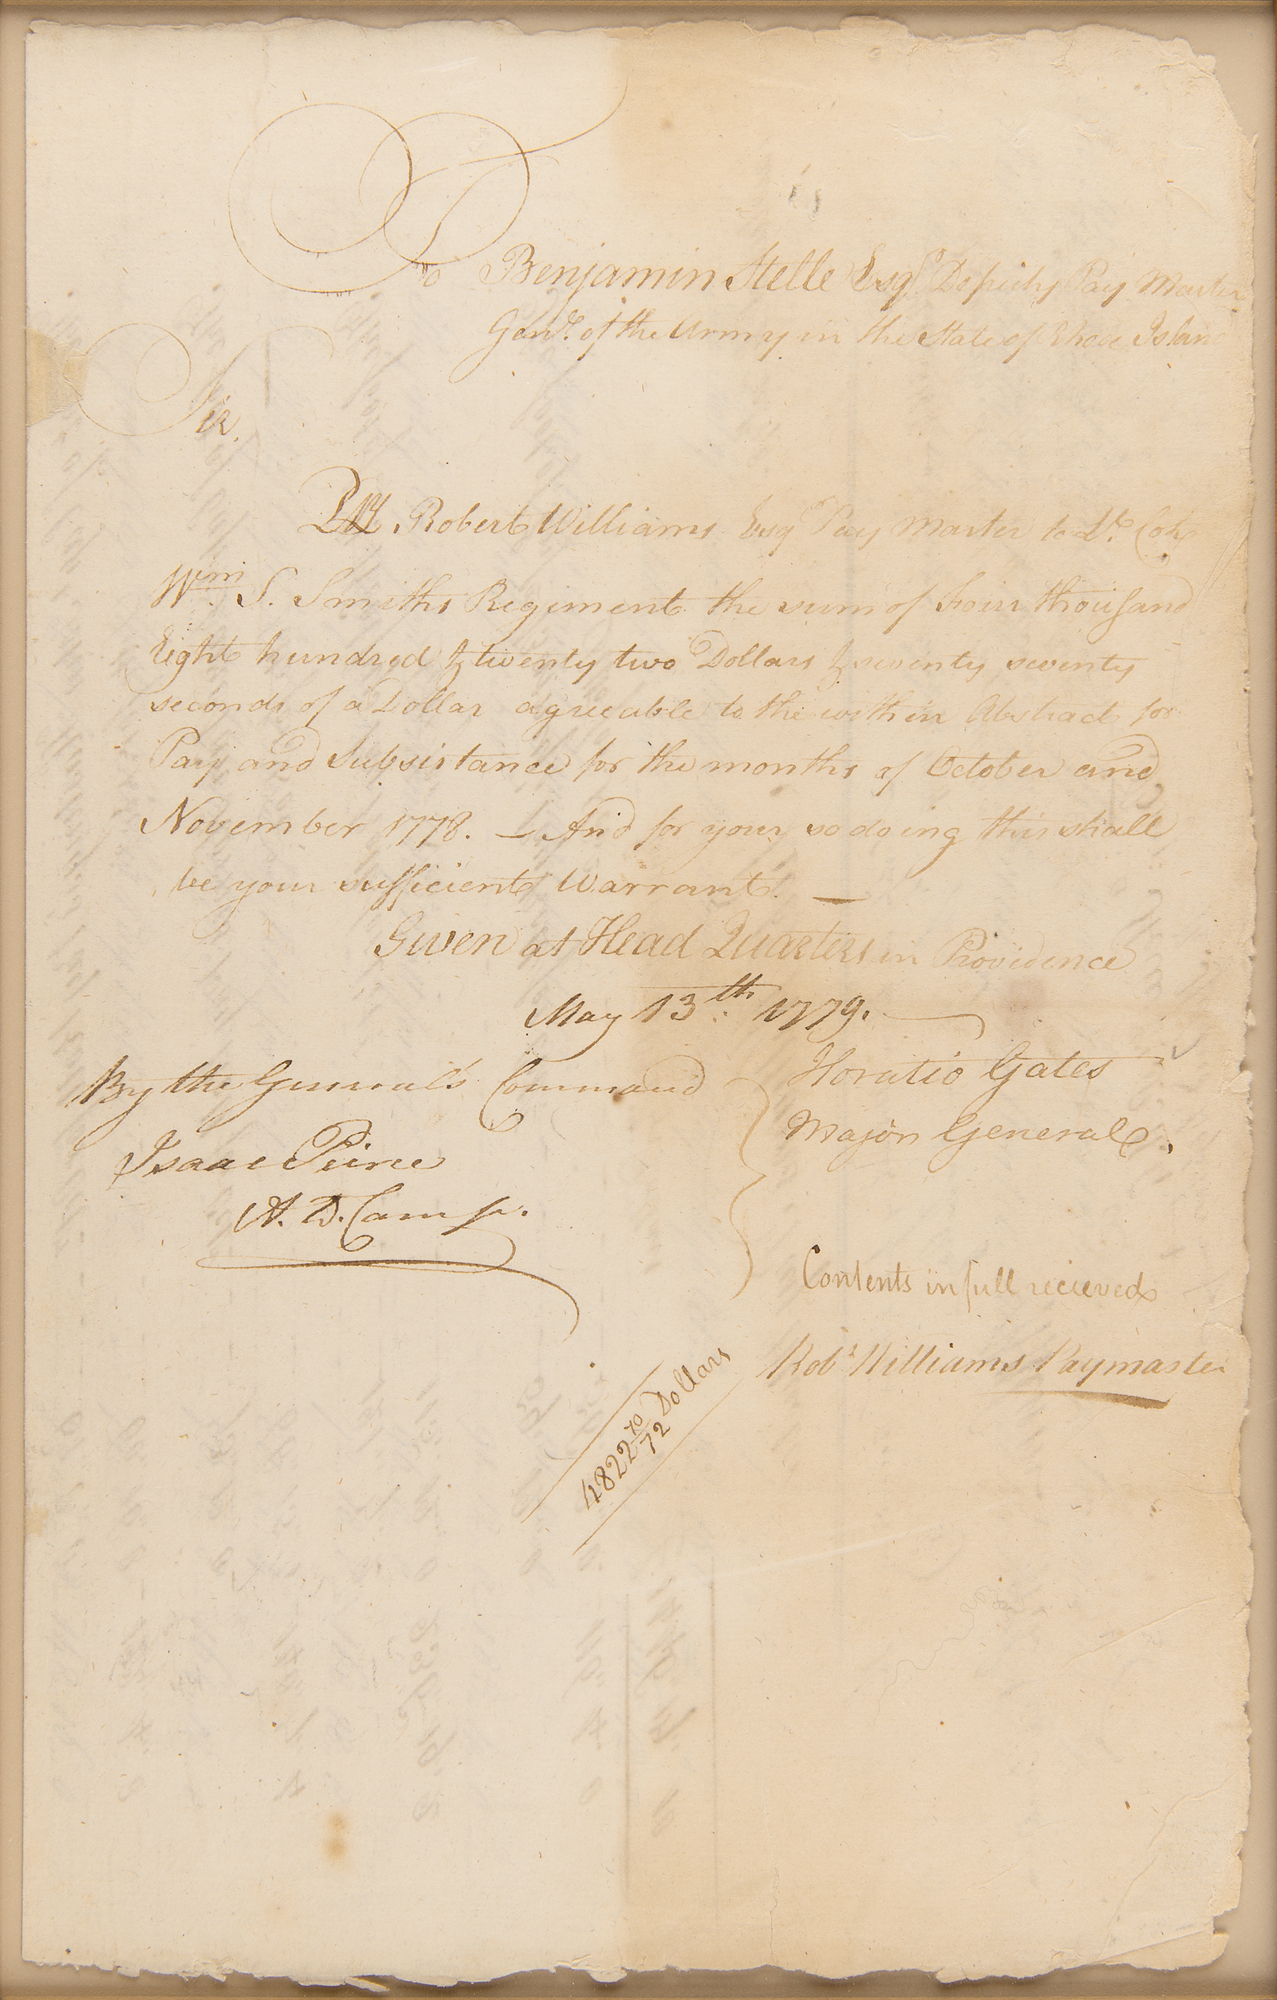 To Benjamin Stelle Esqr. Deputy Pay Master
Genl. of the Army in the State of Rhode Island
Sir.
Pay Robert Williams Esqr Pay Master to Lt. Colo
Wm. S. Smiths Regiment the sum of four thousand
Eight hundred & twenty two Dollars & seventy seventy
seconds of a Dollar agreeable to the within Abstract for
Pay and Subsistance for the months of October and
November 1778. — And for your so doing this shall
be your sufficient Warrant. —
Given at Head Quarters in Providence
May 13th. 1779.
Horatio Gates
Major General.
By the General's Command
Isaac Peirce
A. D. Camp.
Contents in full recieved
Robt Williams Paymaster
4822 70/72 Dollars